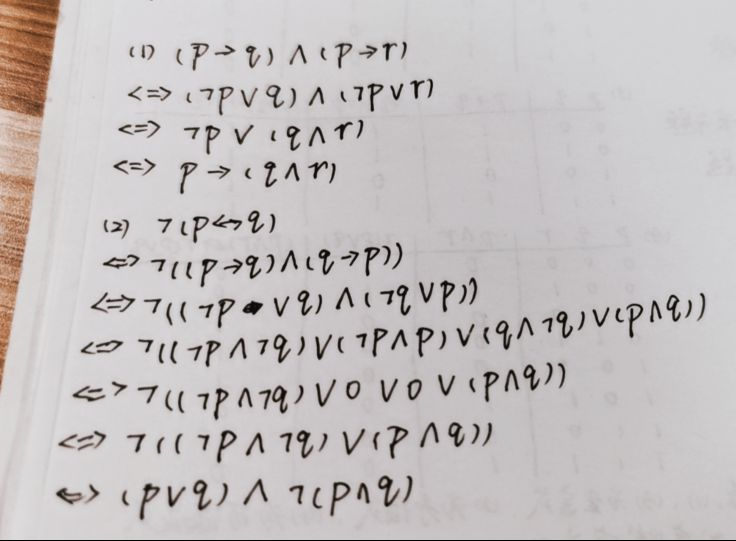 (1) (p→q)∧(p→r)
<=> (¬p∨q)∧(¬p∨r)
<=> ¬p∨(q∧r)
<=> p→(q∧r)
(2) ¬(p↔q)
<=> ¬((p→q)∧(q→p))
<=> ¬((¬p∨q)∧(¬q∨p))
<=> ¬((¬p∧¬q)∨(¬p∧p)∨(q∧¬q)∨(p∧q))
<=> ¬((¬p∧¬q)∨0∨0∨(p∧q))
<=> ¬((¬p∧¬q)∨(p∧q))
<=> (p∨q)∧¬(p∧q)